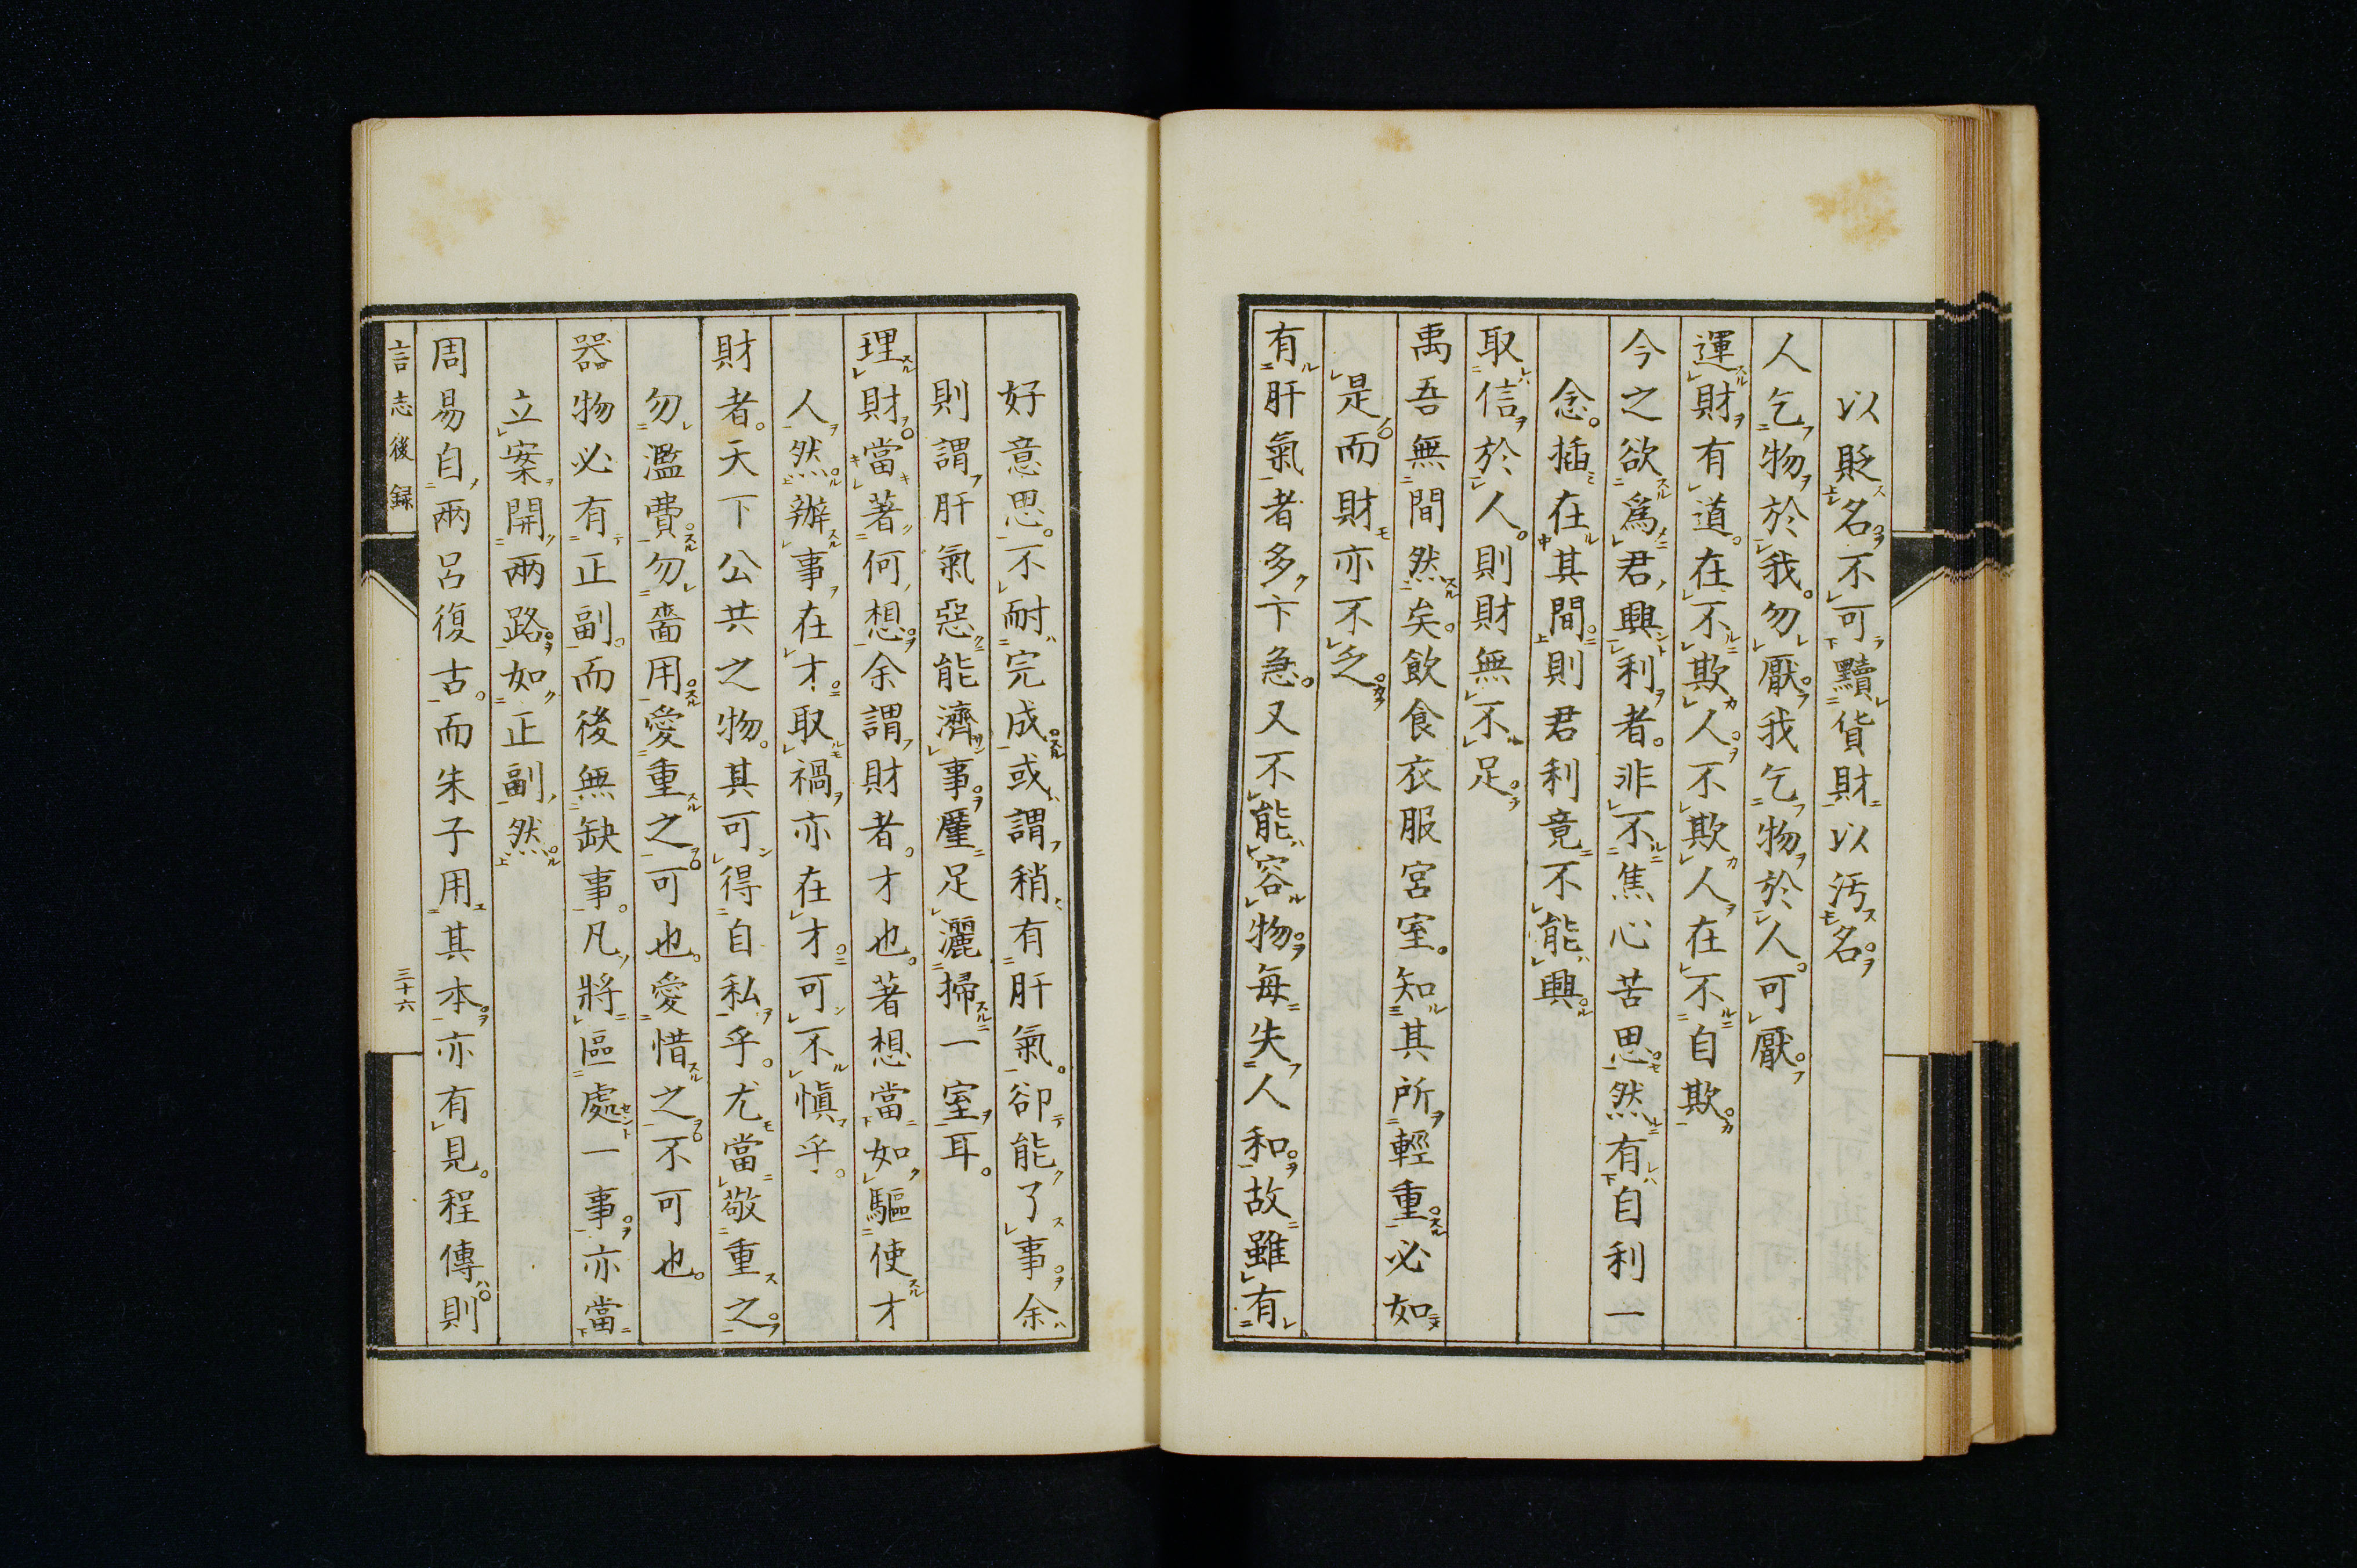 以貶名。不可黷貨財以汚名。
人乞物於我。勿厭。我乞物於人。可厭。
運財有道。在不欺人。不欺人在不自欺。
今之欲爲君興利者。非不焦心苦思。然有自利一
念。插在其間。則君利竟不能興。
取信於人。則財無不足。
禹吾無間然矣。飲食衣服宮室。知其所輕重。必如
是。而財亦不乏。
有肝氣者多卞急。又不能容物。每失人和。故雖有
好意思。不耐完成。或謂稍有肝氣。卻能了事。余
則謂肝氣惡能濟事。廑足灑掃一室耳。
理財。當著何想。余謂財者。才也。著想當如驅使才
人然。辦事在才。取禍亦在才。可不愼乎。
財者。天下公共之物。其可得自私乎。尤當敬重之。
勿濫費。勿嗇用。愛重之。可也。愛惜之。不可也。
器物必有正副。而後無缺事。凡將區處一事。亦當
立案開兩路。如正副然。
周易自兩呂復古。而朱子用其本。亦有見。程傳則
言志後録
三十六